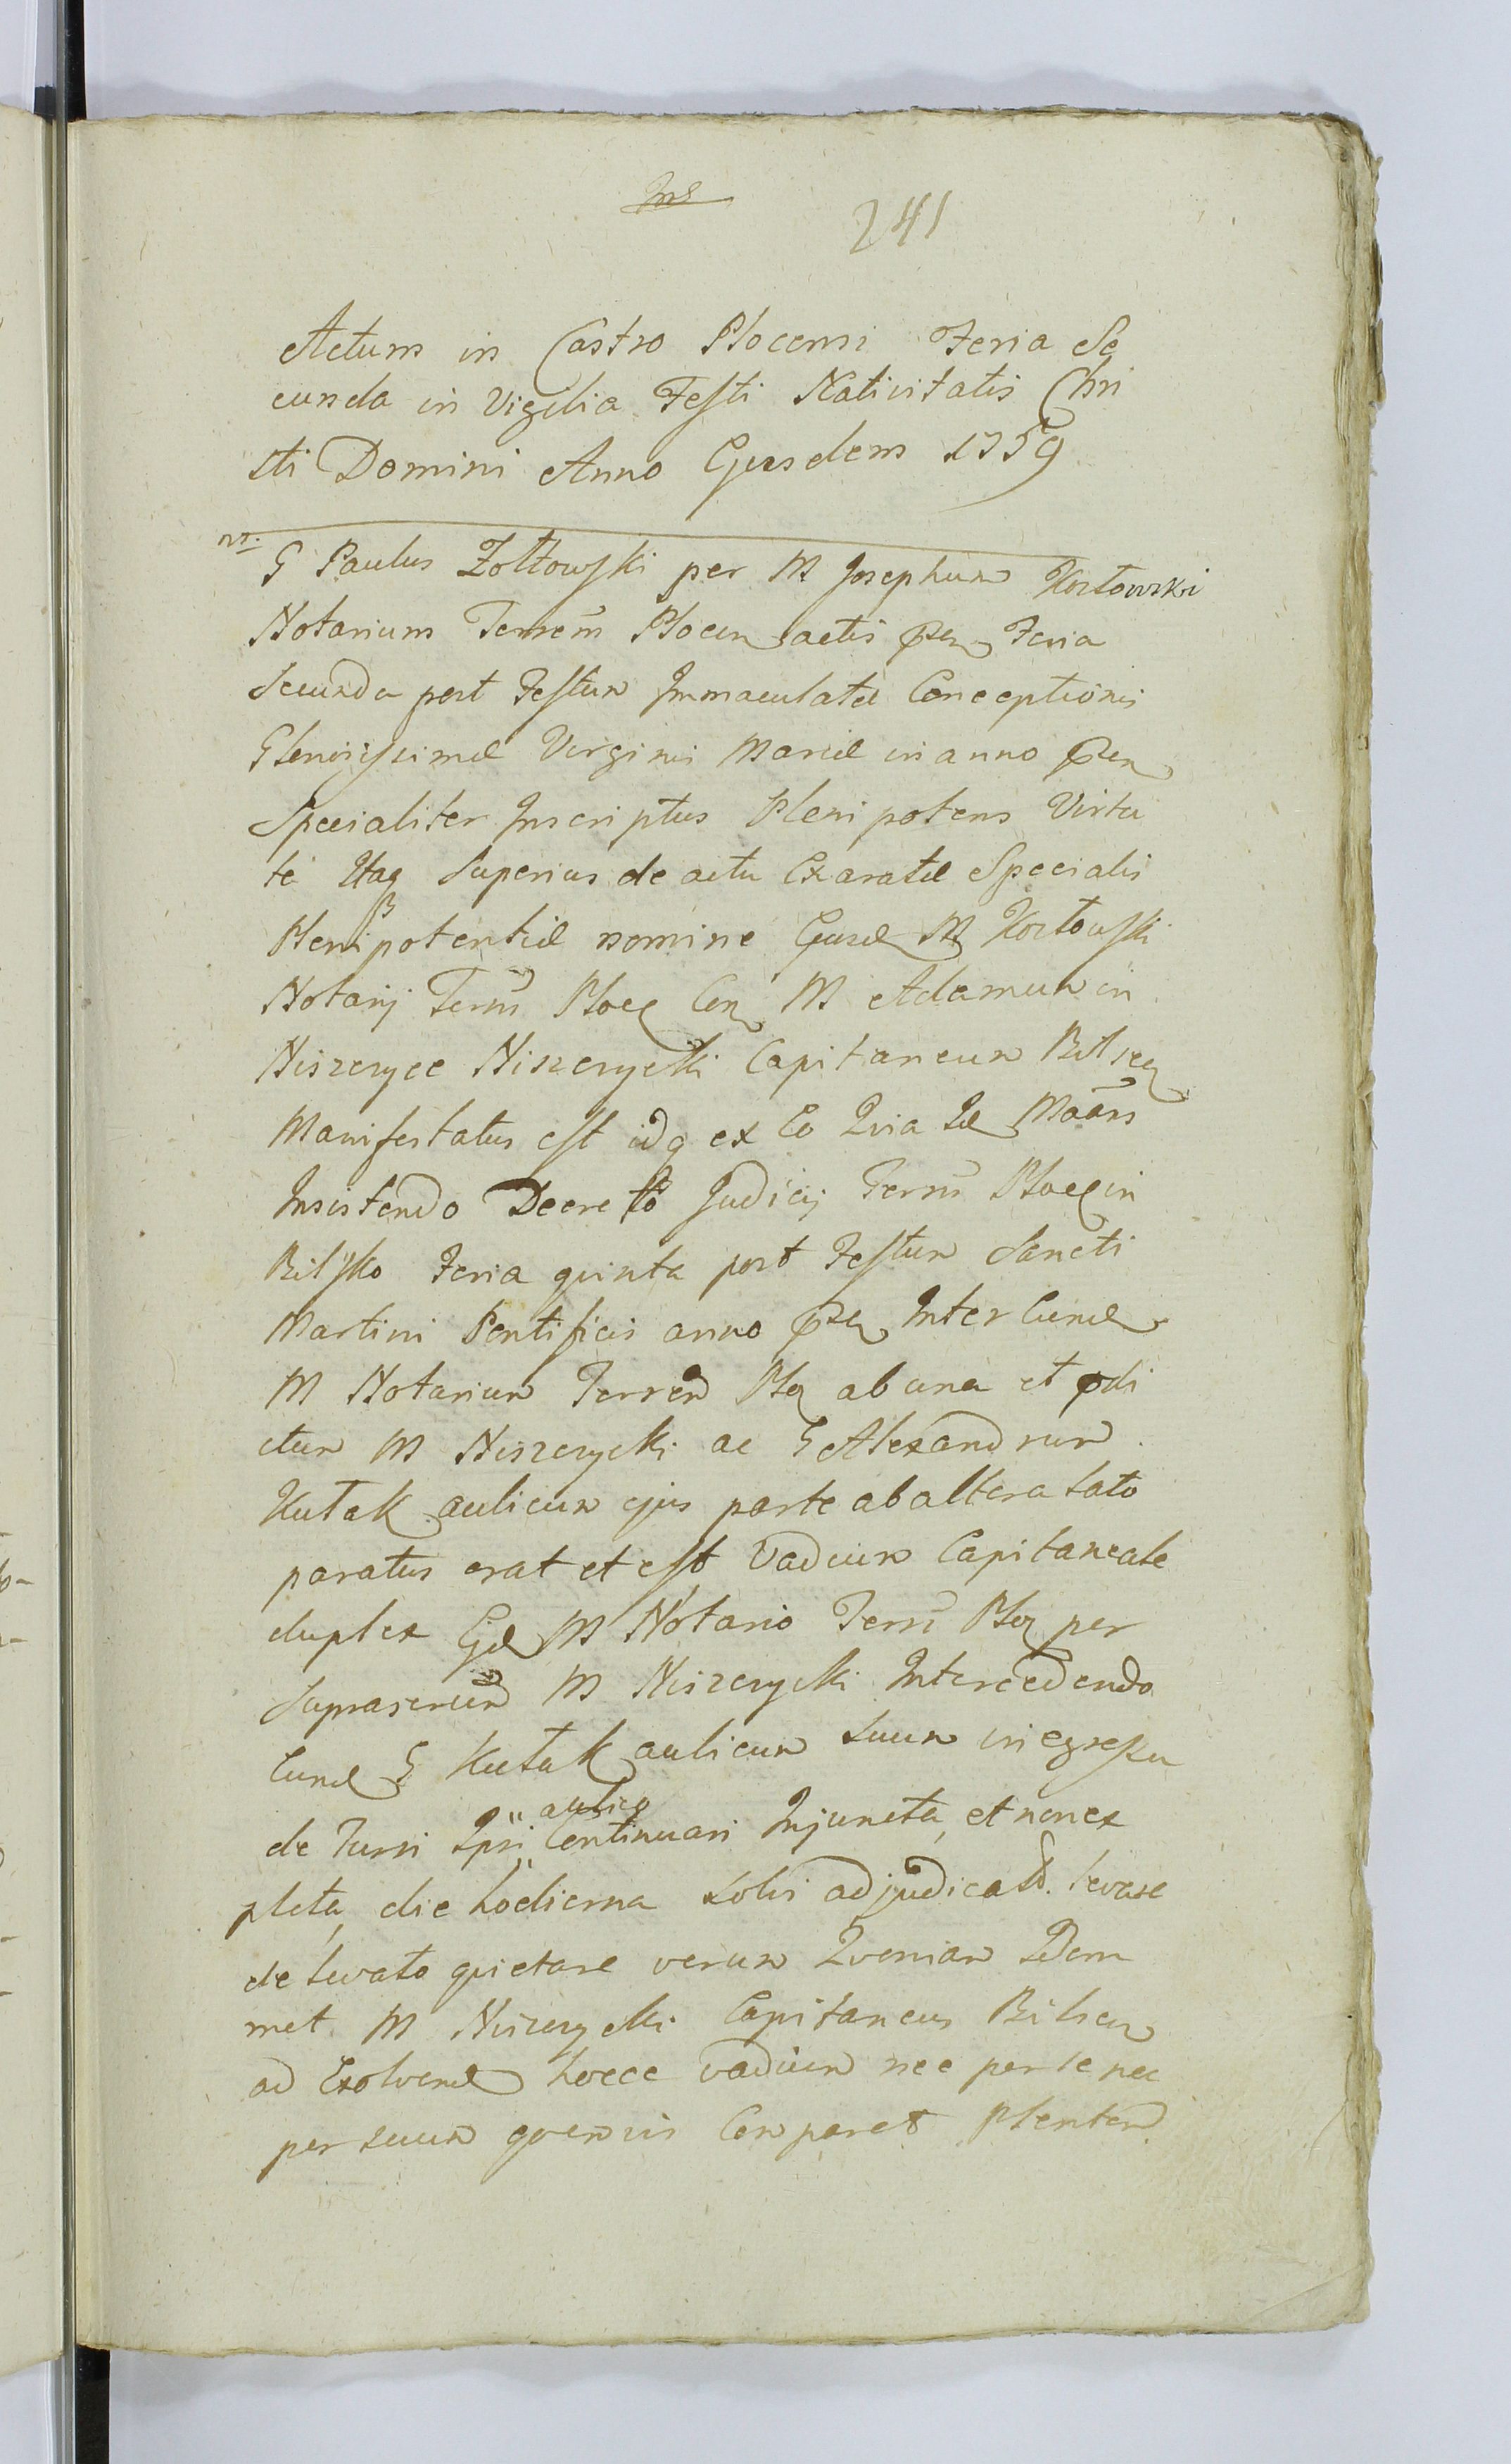 241
Actum in Castro Plocensi Feria Se
cunda in Vigilia Festi Nativitatis Chri
sti Domini Anno Ejusdem 1759
G Paulus Zołtowski per M Josephum Kozłowski
Notarium Terrem Plocen actis pren Feria
Secunda post Festum Immaculatae Conceptionis
Gloriosissimae Virginis Mariae in anno pren
Specialiter Inscriptus Plenipotens Virtu
te Itaq Superius de actu Exaratae Specialis
Plenipotentiae nomine Ejusd M Kozłowski
Notarij Terrs Ploc Con M Adamum in
Niszczyce Niszczycki Capitaneum Bilscen
Manifestatus est idq ex Eo Qvia Id Maans
Insistendo Decreto Judicij Terrs Ploc in
Bilsko Feria quinta post Festum Sancti
Martini Pontificis anno pren Inter Eund
M Notarium Terren Plo ab una et prdi
ctum M Niszczycki ac G Alexandrum
Kutak aulicum ejus parte ab altera Lato
paratus erat et est Vadium Capitaneale
duplex Ejd M Notario Terrs Plo per
Suprascrium M Niszczycki Intercedendo
Eund G Kutak aulicum Suum in egressu
de Turri Ipsi aulico Continuari Injuncta, et non ex
pleta, die hodierna Solvi adjudicatd. levare
de levato quietare verum Qvoniam Idem
met M Niszczycki Capitaneus Bilscen
ad Exolvend hocce vadium nec per se nec
per suum qvemvis Comparet Plenten